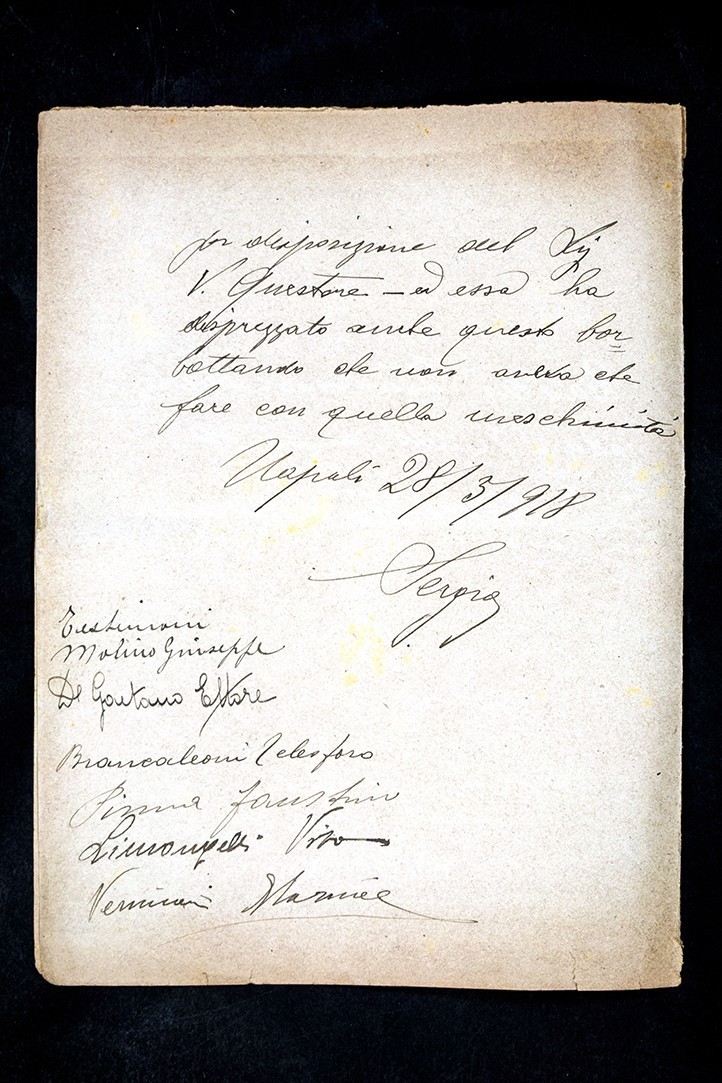 per disposizione del Sig
V. Questore - ed essa ha
disprezzato anche questo bor=
bottando che non aveva che
fare con quella meschinità
Napoli 28/3/918
Sergio
Testimoni
Molino Giuseppe
De Gaetano Ettore
Brancaleoni Telesforo
Pinna Faustino
Limongelli Vito